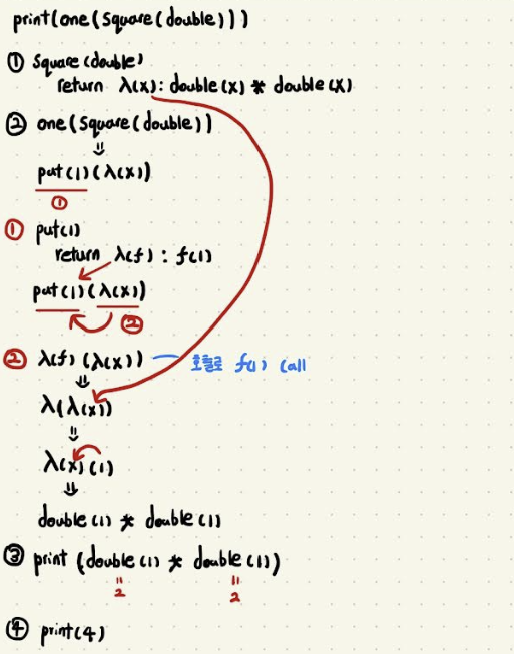 print(one(square(double)))
① square(double)
return λ(x): double(x) * double(x)
② one(square(double))
⇓
put(1)(λ(x))
①
① put(1)
return λ(f): f(1)
put(1)(λ(x))
②
② λ(f)(λ(x)) 호출로 f(1) call
⇓
λ(λ(x))
⇓
λ(x)(1)
⇓
double(1) * double(1)
③ print (double(1) * double(1))
= =
2 2
④ print(4)